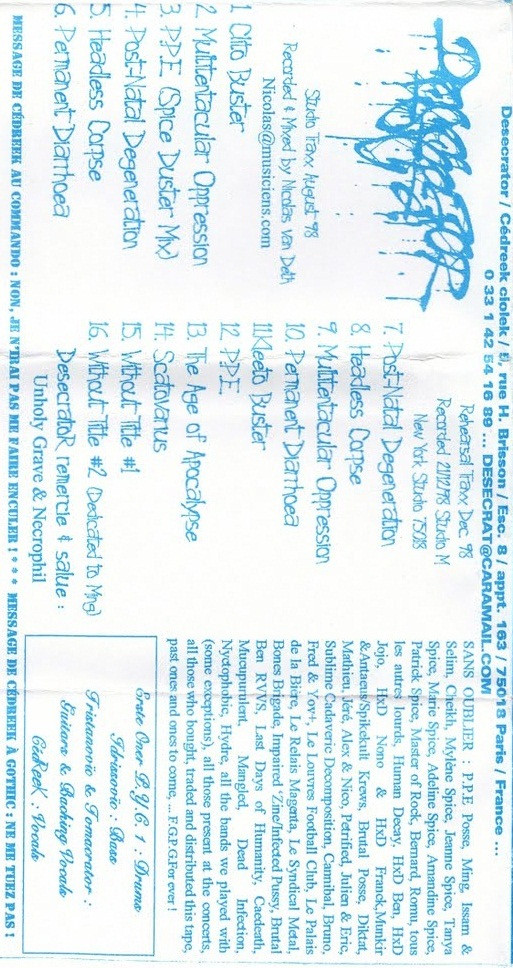 Desecrator / Cédreek ciolek / 5, rue H. Brisson / Esc. 8 / appt. 163 / 75018 Paris / France ...
0 33 1 42 54 16 89 ... DESECRAT@CARAMAIL.COM
DESECRATOR
Studio Traxx August 98
Recorded & Mixed by Nicolas van Deth
Nicolas@musiciens.com
1. Clito Buster
2. Multitentacular Oppression
3. P.P.E (Spice Duster Mix)
4. Post-Natal Degeneration
5. Headless Corpse
6. Permanent Diarrhoea
Rehearsal Traxx Dec. 98
Recorded 21/12/98 Studio M
New York Studio 75018
7. Post-Natal Degeneration
8. Headless Corpse
9. Multitentacular Oppression
10. Permanent Diarrhoea
11.Kleeto Buster
12. P.P.E.
13. The Age of Apocalypse
14. Scatovarius
15. Without Title #1
16. Without Title #2 (Dedicated to Ming)
DesecratoR remercie & salue :
Unholy Grave & Necrophil
SANS OUBLIER : P.P.E. Posse, Ming, Issam &
Selim, Cheikh, Mylène Spice, Jeanne Spice, Tanya
Spice, Marie Spice, Adeline Spice, Amandine Spice,
Patrick Spice, Master of Rock, Bernard, Romu, tous
les autres lourds, Human Decay, HxD Ben, HxD
Jojo, HxD Nono & HxD Franck,Munkir
&Antaeus/Spikekult Krews, Brutal Posse, Diktat,
Mathieu, Jéré, Alex & Nico, Petrified, Julien & Eric,
Sublime Cadaveric Decomposition, Cannibal, Bruno,
Fred & Yov+, Le Louvres Football Club, Le Palais
de la Bière, Le Relais Magenta, Le Syndical Metal,
Bones Brigade, Impaired 'Zine/Infected Pussy, Brutal
Ben RVVS, Last Days of Humanity, Caedeath,
Mucupurulent, Mangled, Dead Infection,
Nyctophobic, Hydre, all the bands we played with
(some exceptions), all those present at the concerts,
all those who bought, traded and distributed this tape,
past ones and ones to come, ... F.G.P.G.For ever !
Erste Oner D.Y.C. 1 : Drums
Idrasovic : Bass
Tristanovic & Tomacrator :
Guitars & Backing Vocals
CieReeK : Vocals
MESSAGE DE CÉDREEK AU COMMANDO : NON, JE N'IRAI PAS ME FAIRE ENCULER ! * * * MESSAGE DE CÉDREEK À GOTHIC : NE ME TUEZ PAS !